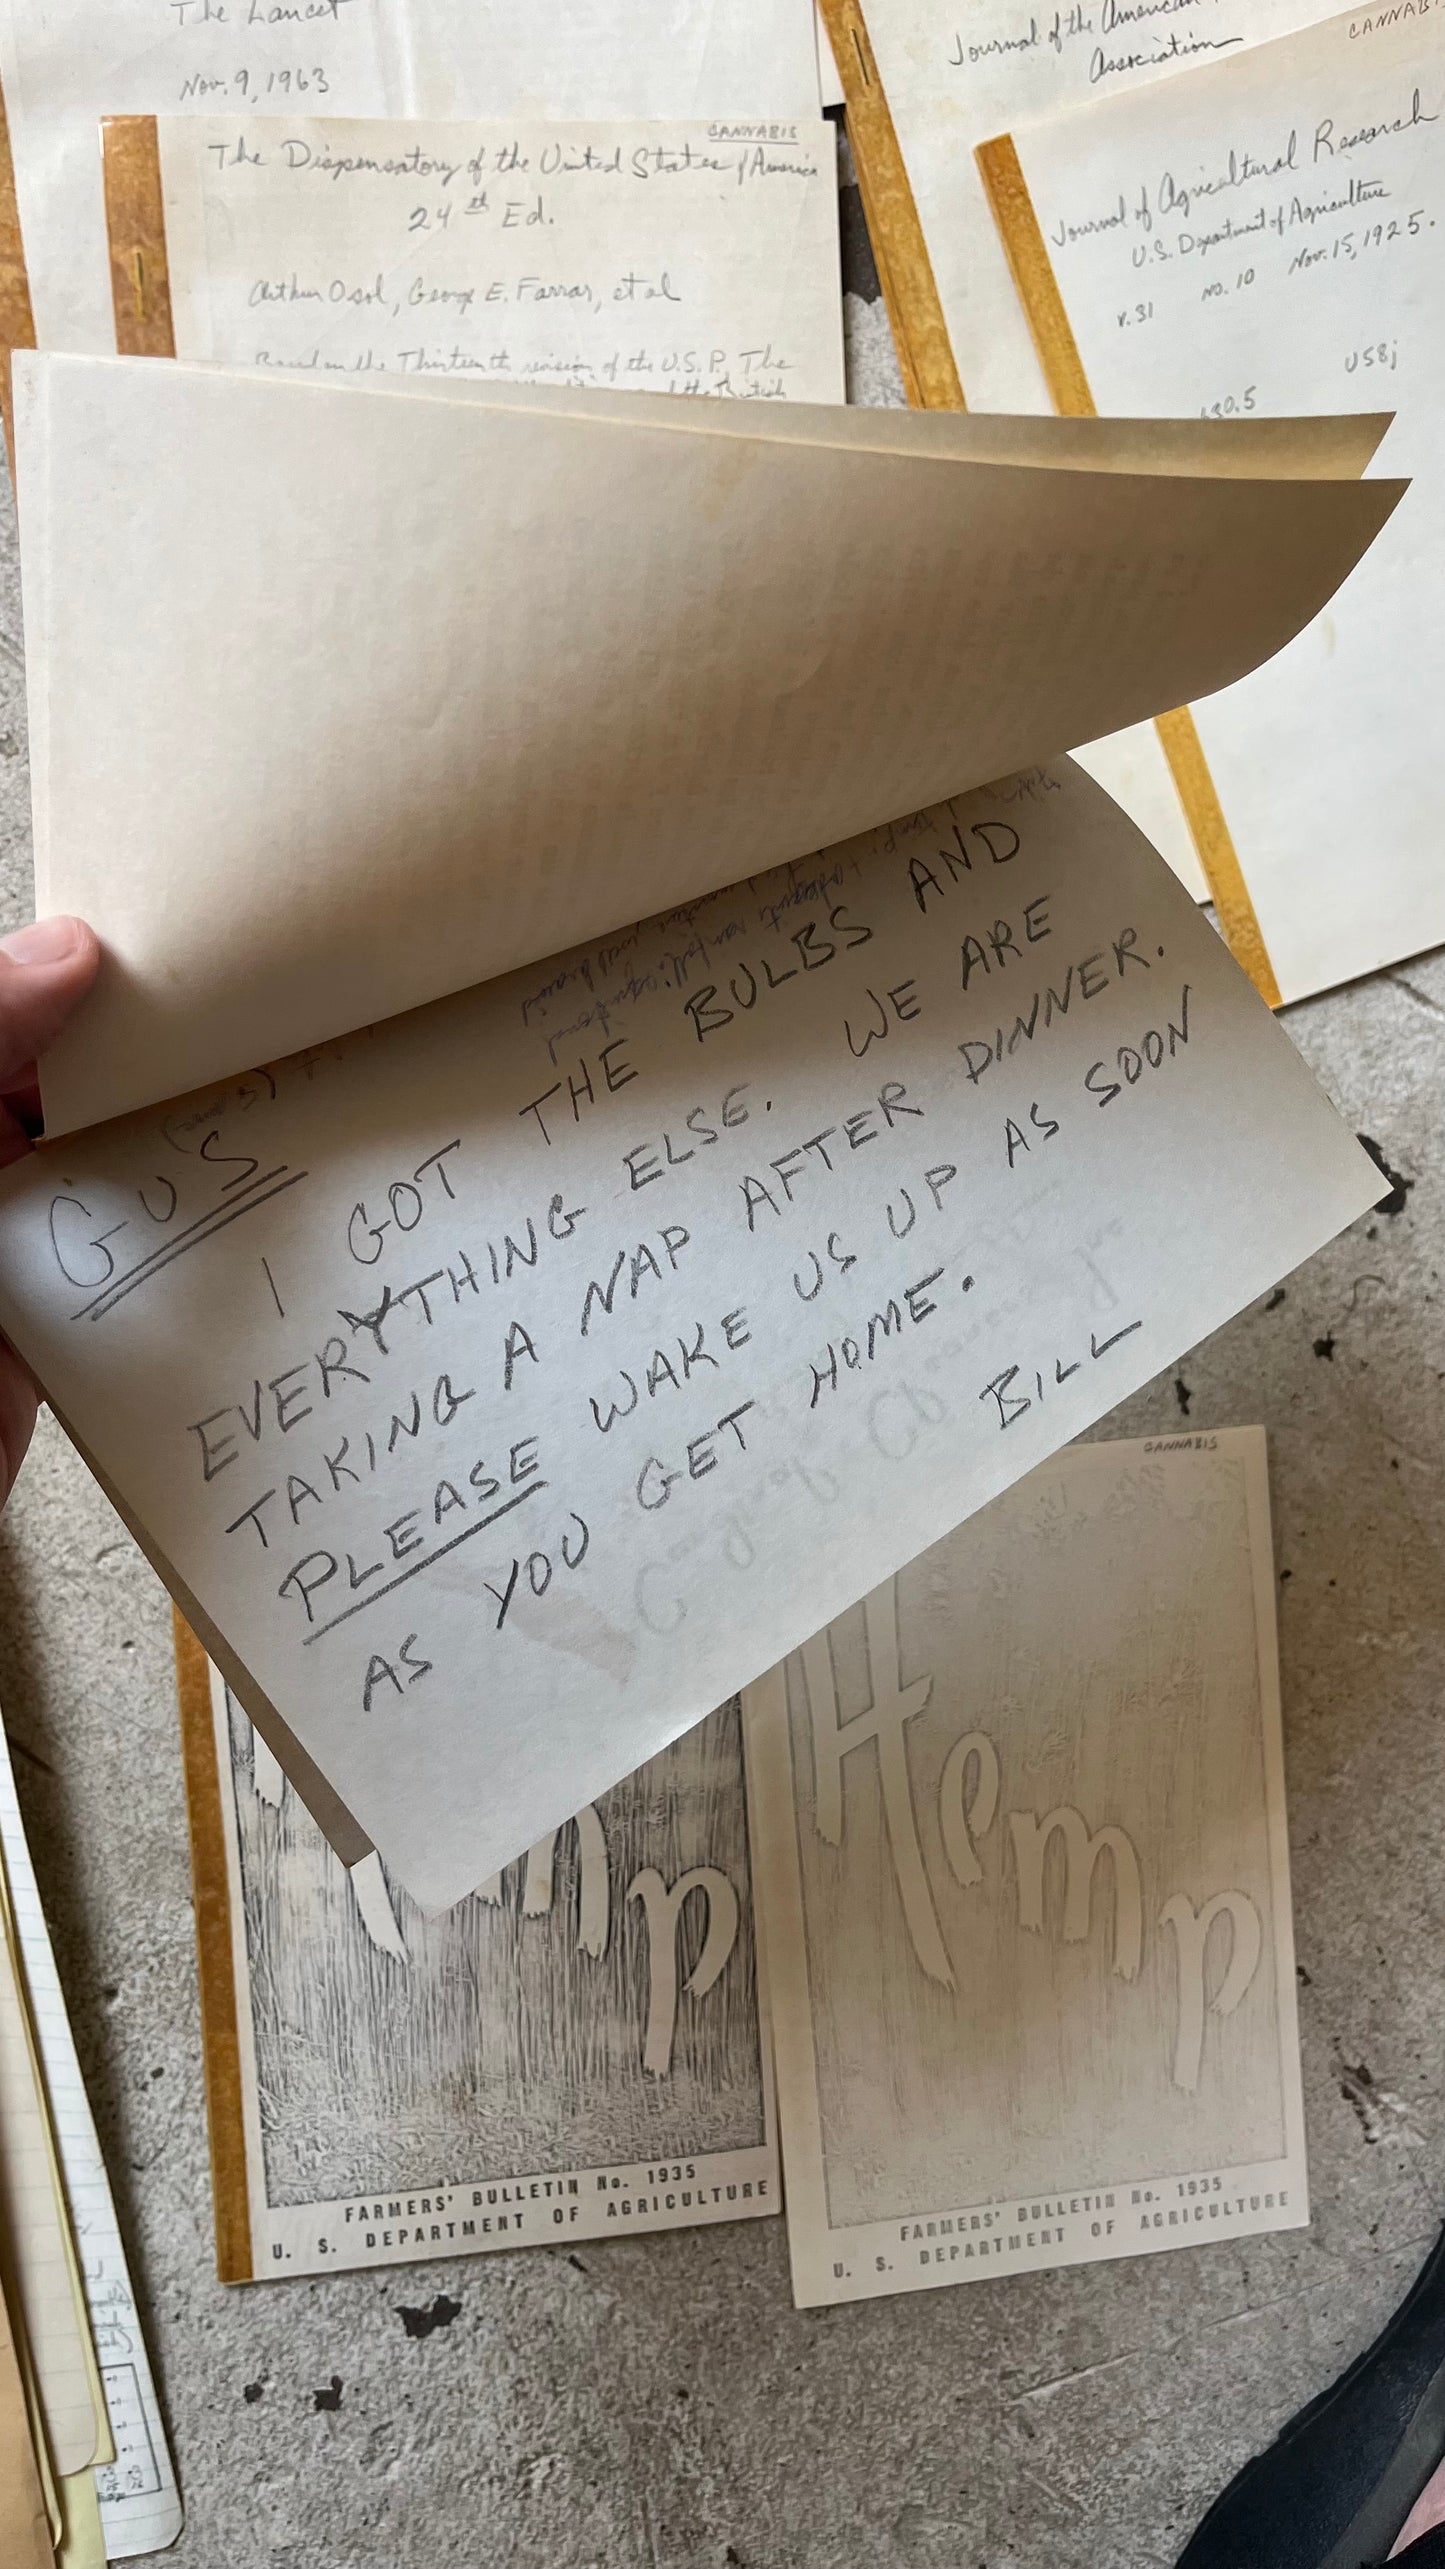 The Lancet
Nov. 9, 1963
CANNABIS
The Dispensatory of the United States of America
24th Ed.
Arthur Osol, George E. Farrar, et al
Based on the Thirteenth revision of the U.S.P., The
of the British
Journal of the American
Association
CANNABIS
Journal of Agricultural Research
U.S. Department of Agriculture
v. 31 no. 10 Nov. 15, 1925.
630.5 US8j
GUS
I GOT THE BULBS AND
EVERYTHING ELSE. WE ARE
TAKING A NAP AFTER DINNER.
PLEASE WAKE US UP AS SOON
AS YOU GET HOME.
BILL
FARMERS' BULLETIN No. 1935
U. S. DEPARTMENT OF AGRICULTURE
CANNABIS
Hemp
FARMERS' BULLETIN No. 1935
U. S. DEPARTMENT OF AGRICULTURE